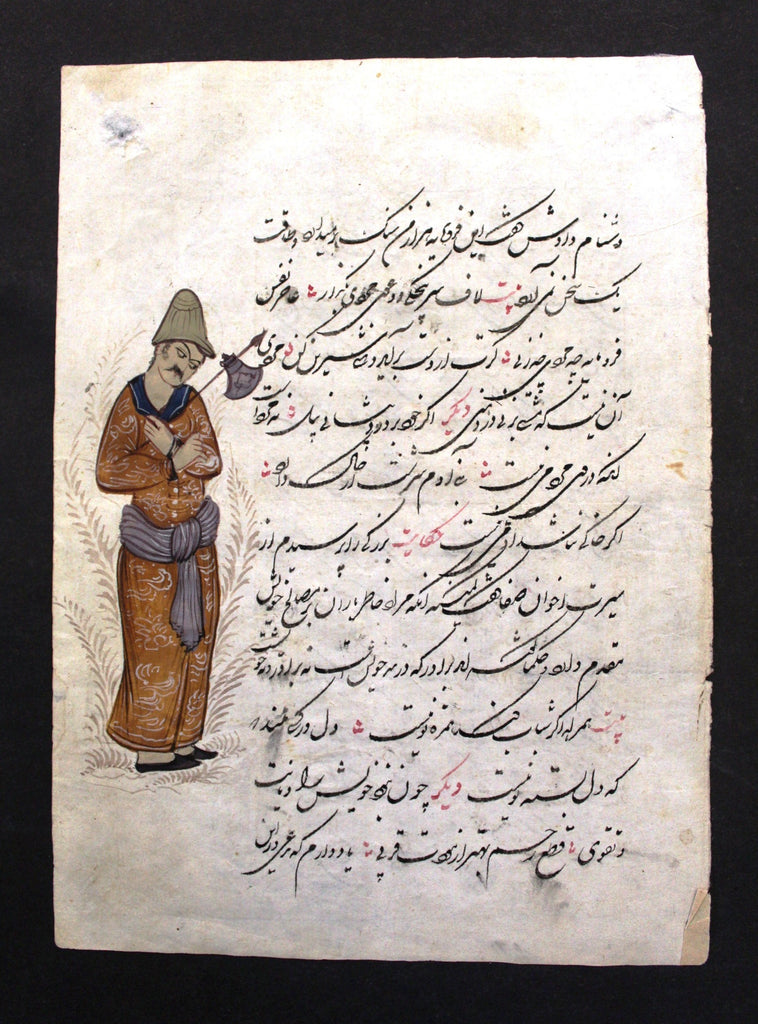 دشنام دادش گفت این فرومایه هزار من سنگ بر میدارد و طاقت
یک سخن نمی آرد بیت لاف سر پنجگی و دعوی مردی بگذار عاجز نفس
فرومایه چه مردی چه زنی گرت از دست برآید دهنی شیرین کن مردی
آن نیست که مشتی بزنی بر دهنی دیگر اگر خود بر درد پیشانی پیل نه مرد است
آنکه در وی مردمی نیست بنی آدم سرشت از خاک دارد
اگر خاکی نباشد آدمی نیست حکایت بزرگی را پرسیدم از
سیرت اخوان صفا گفت کمینه آنکه مراد خاطر یاران بر مصالح خویش
مقدم دارد و حکما گفته اند برادر که در بند خویش است نه برادر و نه خویش است
بیت همراه اگر شتاب کند همره تو نیست دل در کسی مبند
که دل بسته تو نیست دیگر چون نبود خویش را دیانت
و تقوی قطع رحم بهتر از مودت قربی یاد دارم که مدعی در این